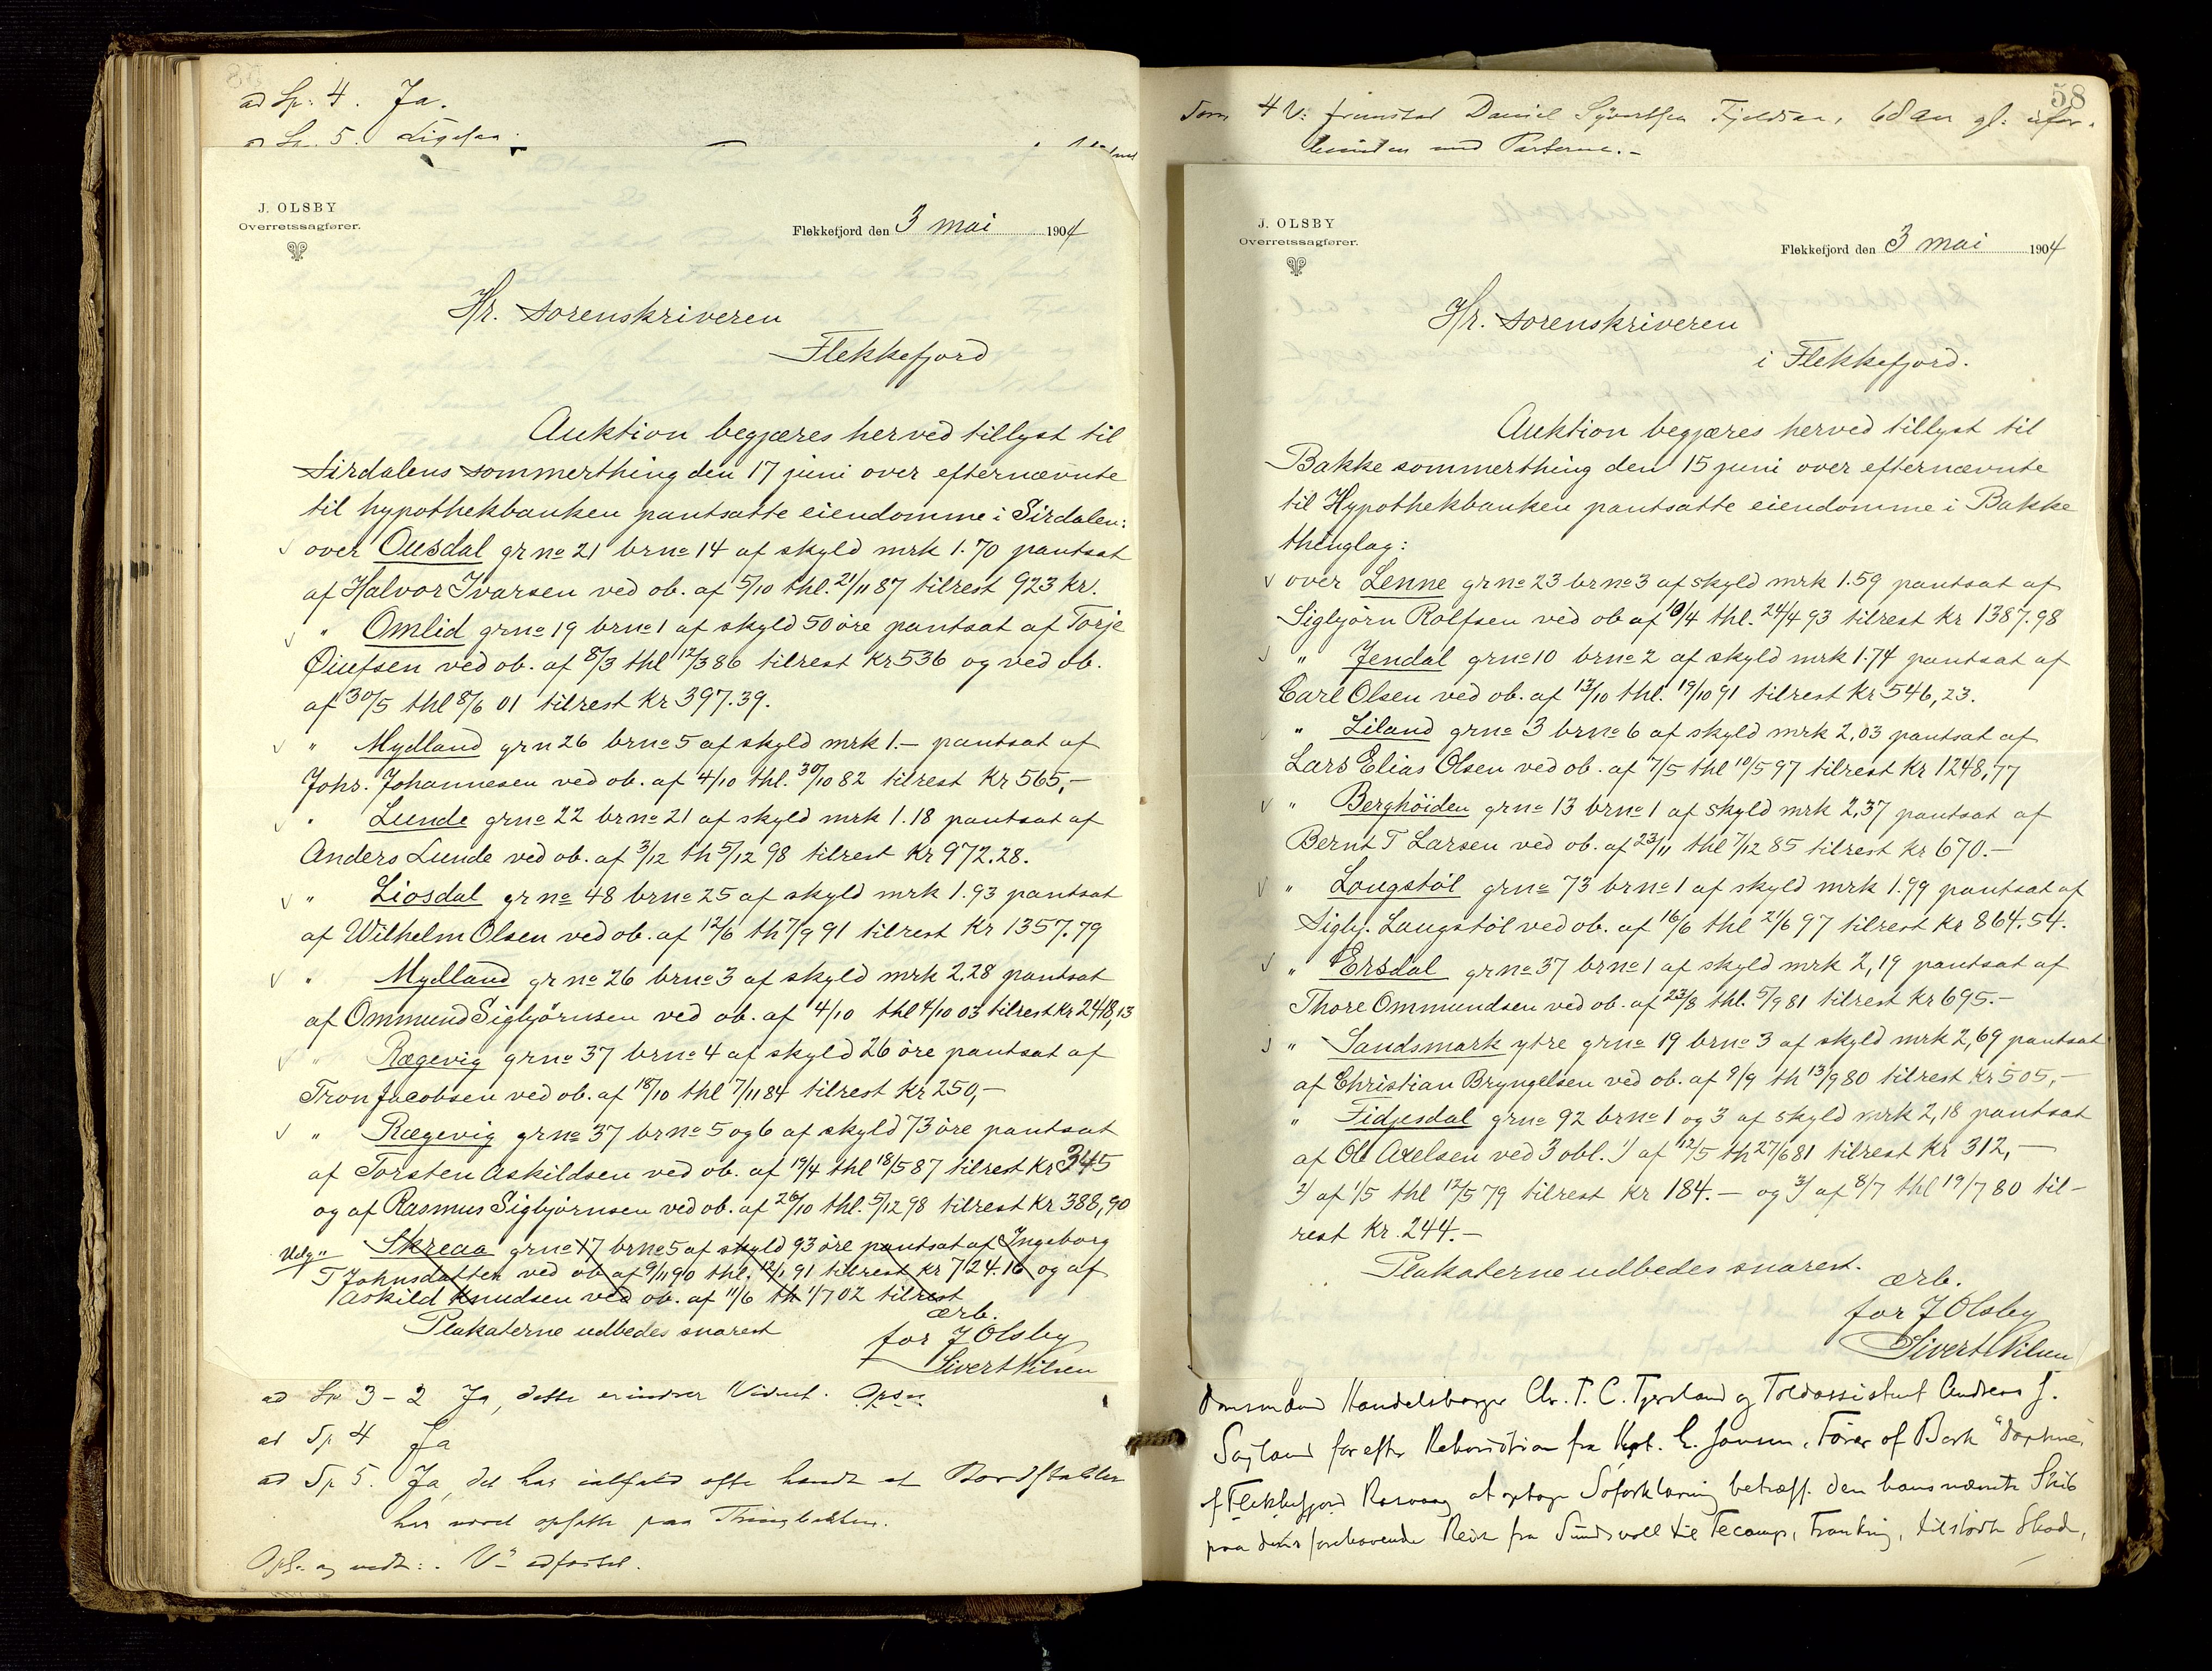 ad Sp: 4. Ja.
ad Sp. 5. Ligesaa.
J. OLSBY
Overretssagfører.
Flekkefjord den 3 mai 1904
Hr. sorenskriveren
Flekkefjord
Auktion begjæres herved tillyst til
Sirdalens sommerthing den 17 juni over efternævnte
til hypothekbanken pantsatte eiendomme i Sirdalen:
over Ousdal gr no 21 br no 14 af skyld mrk 1.70 pantsat
af Halvor Ivarsen ved ob. af 5/10 thl. 21/11 87 tilrest 923 kr.
" Omlid gr no 19 br no 1 af skyld 50 øre pantsat af Torje
Øiufsen ved ob. af 8/3 thl 12/3 86 tilrest Kr 536 og ved ob.
af 30/5 thl 8/6 01 tilrest Kr 397.39.
" Mydland gr n 26 br no 5 af skyld mrk 1.– pantsat af
Johs. Johannesen ved ob. af 4/10 thl. 30/10 82 tilrest Kr 565,–
" Lunde gr no 22 br no 21 af skyld mrk 1.18 pantsat af
Anders Lunde ved ob. af 3/12 th 5/12 98 tilrest Kr 972.28.
" Liosdal gr no 48 br no 25 af skyld mrk 1.93 pantsat
af Wilhelm Olsen ved ob. af 12/6 th 7/9 91 tilrest Kr 1357.79
" Mydland gr no 26 br no 3 af skyld mrk 2.28 pantsat
af Ommund Sigbjörnsen ved ob. af 4/10 thl 4/10 03 tilrest Kr 2418,13
" Rægevig gr no 37 br no 4 af skyld 26 øre pantsat af
Tron Jacobsen ved ob. af 18/10 thl 7/11 84 tilrest Kr 250,–
" Rægevig gr no 37 br no 5 og 6 af skyld 73 øre pantsat
af Torsten Askildsen ved ob. af 19/4 thl 18/5 87 tilrest Kr 345
og af Rasmus Sigbjørnsen ved ob. af 26/10 thl. 5/12 98 tilrest Kr 388,90
" Skreaa gr no 17 br no 5 af skyld 93 øre pantsat af Ingeborg
T Johnsdatter ved ob af 9/11 90 thl. 12/1 91 tilrest Kr 724.16 og af
Askild Knudsen ved ob. af 11/6 th 1/7 02 tilrest
Plakaterne udbedes snarest
ærb.
for J Olsby
Sivert Nilsen
ad Sp 3 – 2 Ja, dette erindrer Vidnet. Opsn
ad Sp 4 Ja
ad Sp 5. Ja, det har ialfald ofte hændt at Bordstabler
har været opsatte paa Thingbakken.
Opl. og vedt:. Vn
58
Som 4 V: fremstod Daniel Syvertsen Fjeldsaa, 68 aar gl:
med Parterne.–
J. OLSBY
Overretssagfører.
Flekkefjord den 3 mai 1904
Hr. sorenskriveren
i Flekkefjord.
Auktion begjæres herved tillyst til
Bakke sommerthing den 15 juni over efternævnte
til Hypothekbanken pantsatte eiendomme i Bakke
thinglag:
over Lenne gr no 23 br no 3 af skyld mrk 1.59 pantsat af
Sigbjørn Rolfsen ved ob af 10/4 thl. 24/4 93 tilrest Kr 1387.98
" Jendal gr no 10 br no 2 af skyld mrk 1.74 pantsat af
Carl Olsen ved ob. af 13/10 thl. 19/10 91 tilrest Kr 546,23.
" Liland gr no 3 br no 6 af skyld mrk 2,03 pantsat af
Lars Elias Olsen ved ob. af 7/5 thl 10/5 97 tilrest Kr 1248,77
" Berghöiden gr no 13 br no 1 af skyld mrk 2,37 pantsat af
Bernt T Larsen ved ob. af 23/11 thl 7/12 85 tilrest Kr 670.–
" Longstøl gr no 73 br no 1 af skyld mrk 1.99 pantsat af
Sigbj. Laugstøl ved ob. af 16/6 thl 21/6 97 tilrest Kr 864.54.
" Ersdal gr no 37 br no 1 af skyld mrk 2,19 pantsat af
Thore Ommundsen ved ob. af 23/8 thl. 5/9 81 tilrest Kr 695.–
" Sandsmark ytre gr no 19 br no 3 af skyld mrk 2,69 pantsat
af Christian Bryngelsen ved ob. af 9/9 th 13/9 80 tilrest Kr 505,–
" Fidjesdal gr no 92 br no 1 og 3 af skyld mrk 2,18 pantsat
af Ol Axelsen ved 3 obl. 1) af 12/5 th 27/6 81 tilrest Kr 312,–
2) af 1/5 thl 12/5 79 tilrest Kr 184.– og 3) af 8/7 thl 19/7 80 til-
rest Kr. 244.–
Plakaterne udbedes snarest.
ærb.
for J Olsby
Sivert Nilsen
Handelsborger Chr. T. C. Tjersland og Toldassistent Andreas J.
efter Rekvisition fra Kpt. E. Jonsen, Fører af Bark "Daphne"
af Flekkefjord at optage Søforklaring betræff. den hans nævnte Skib
paa dets forehavende Reise fra Sundsvall til Fecamp, Frankrig, tilstødte Skade,